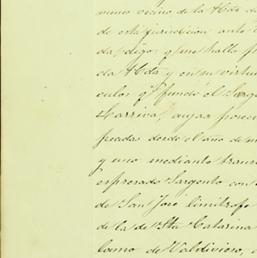 mino vecino de la Hda de
de esta jurisdiccion ante
da, digo: que me halle
da Hda y en su virtud
culos qe. fundó el Sarg
Larriva, cuyas posec
readas desde el año de m
y uno mediante trans
espresado Sargento con
de San José limitrofe
de la de Sta Catarina
Como de Valdivioso,